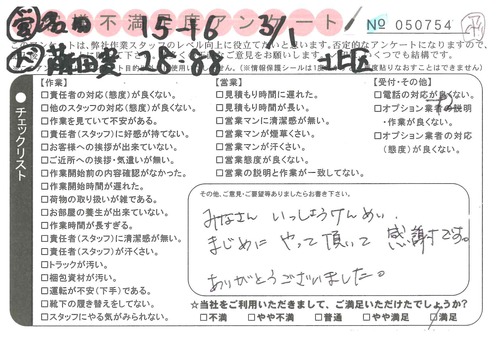 不満足度アンケート
15-46 3/1
№ 050754
28-88 北区
【作業】
□責任者の対応(態度)が良くない。
□他のスタッフの対応(態度)が良くない。
□作業を見ていて不安がある。
□責任者(スタッフ)に好感が持てない。
□お客様への挨拶が出来ていない。
□ご近所への挨拶・気遣いが無い。
□作業開始前の内容確認がなかった。
□作業開始時間が遅れた。
□荷物の取り扱いが雑である。
□お部屋の養生が出来ていない。
□作業時間が長すぎる。
□責任者(スタッフ)に清潔感が無い。
□責任者(スタッフ)が汗くさい。
□トラックが汚い。
□梱包資材が汚い。
□運転が不安(下手)である。
□靴下の履き替えをしてない。
□スタッフにやる気がみられない。
【営業】
□見積もり時間に遅れた。
□見積もり時間が長い。
□営業マンに清潔感が無い。
□営業マンが煙草くさい。
□営業マンが汗くさい。
□営業態度が良くない。
□営業の説明と作業が一致してない。
【受付・その他】
□電話の対応が良くない。
□オプション業者の説明
・作業が良くない。
□オプション業者の対応
(態度)が良くない。
チェックリスト
その他、ご意見・ご要望等ありましたらお書き下さい。
みなさん いっしょうけんめい、
まじめに やって頂いて 感謝です。
ありがとうございました。
☆当社をご利用いただきまして、ご満足いただけたでしょうか?
□不満 □やや不満 □普通 □やや満足 □満足